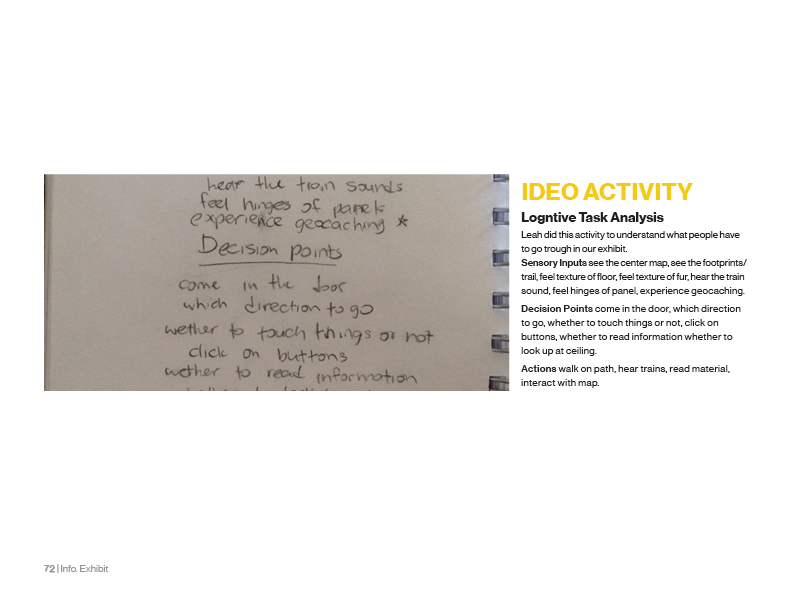 hear the train sounds
feel hinges of panels
experience geocaching *
Decision points
come in the door
which direction to go
wether to touch things or not
click on buttons
wether to read information
IDEO ACTIVITY
Logntive Task Analysis
Leah did this activity to understand what people have
to go trough in our exhibit.
Sensory Inputs see the center map, see the footprints/
trail, feel texture of floor, feel texture of fur, hear the train
sound, feel hinges of panel, experience geocaching.
Decision Points come in the door, which direction
to go, whether to touch things or not, click on
buttons, whether to read information whether to
look up at ceiling.
Actions walk on path, hear trains, read material,
interact with map.
72 | Info. Exhibit